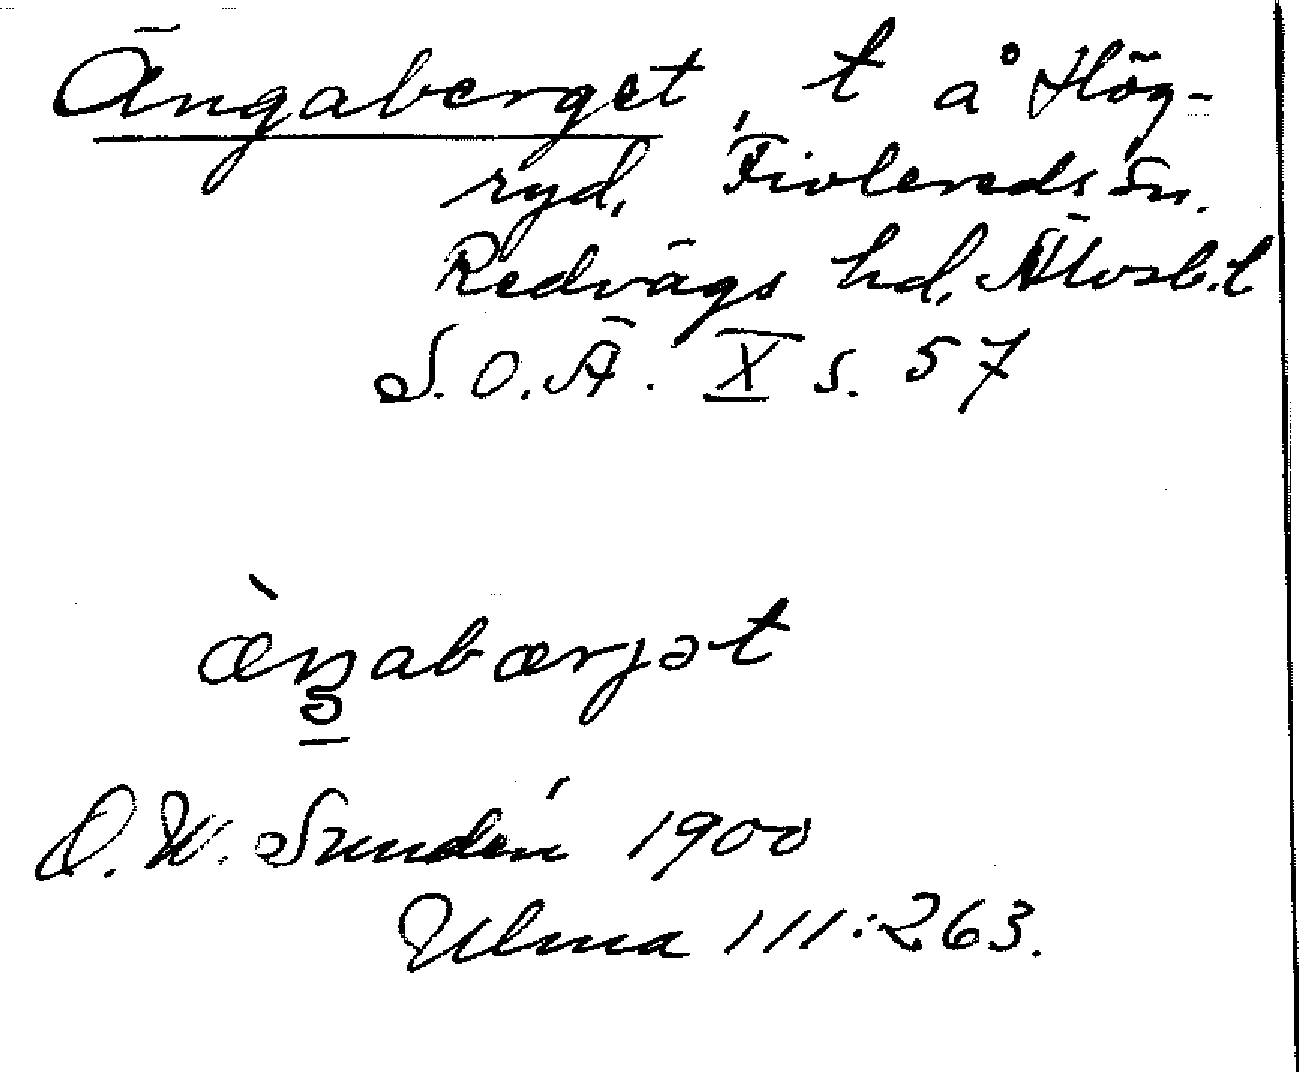 Ängaberget, t å Hög-
ryd, Fivlereds sn.
Redvägs hd, Älvsb. l
S. O. Ä. X s. 57
æ̀ŋabærjət
D. W. Sundén 1900
Ulma 111:263.